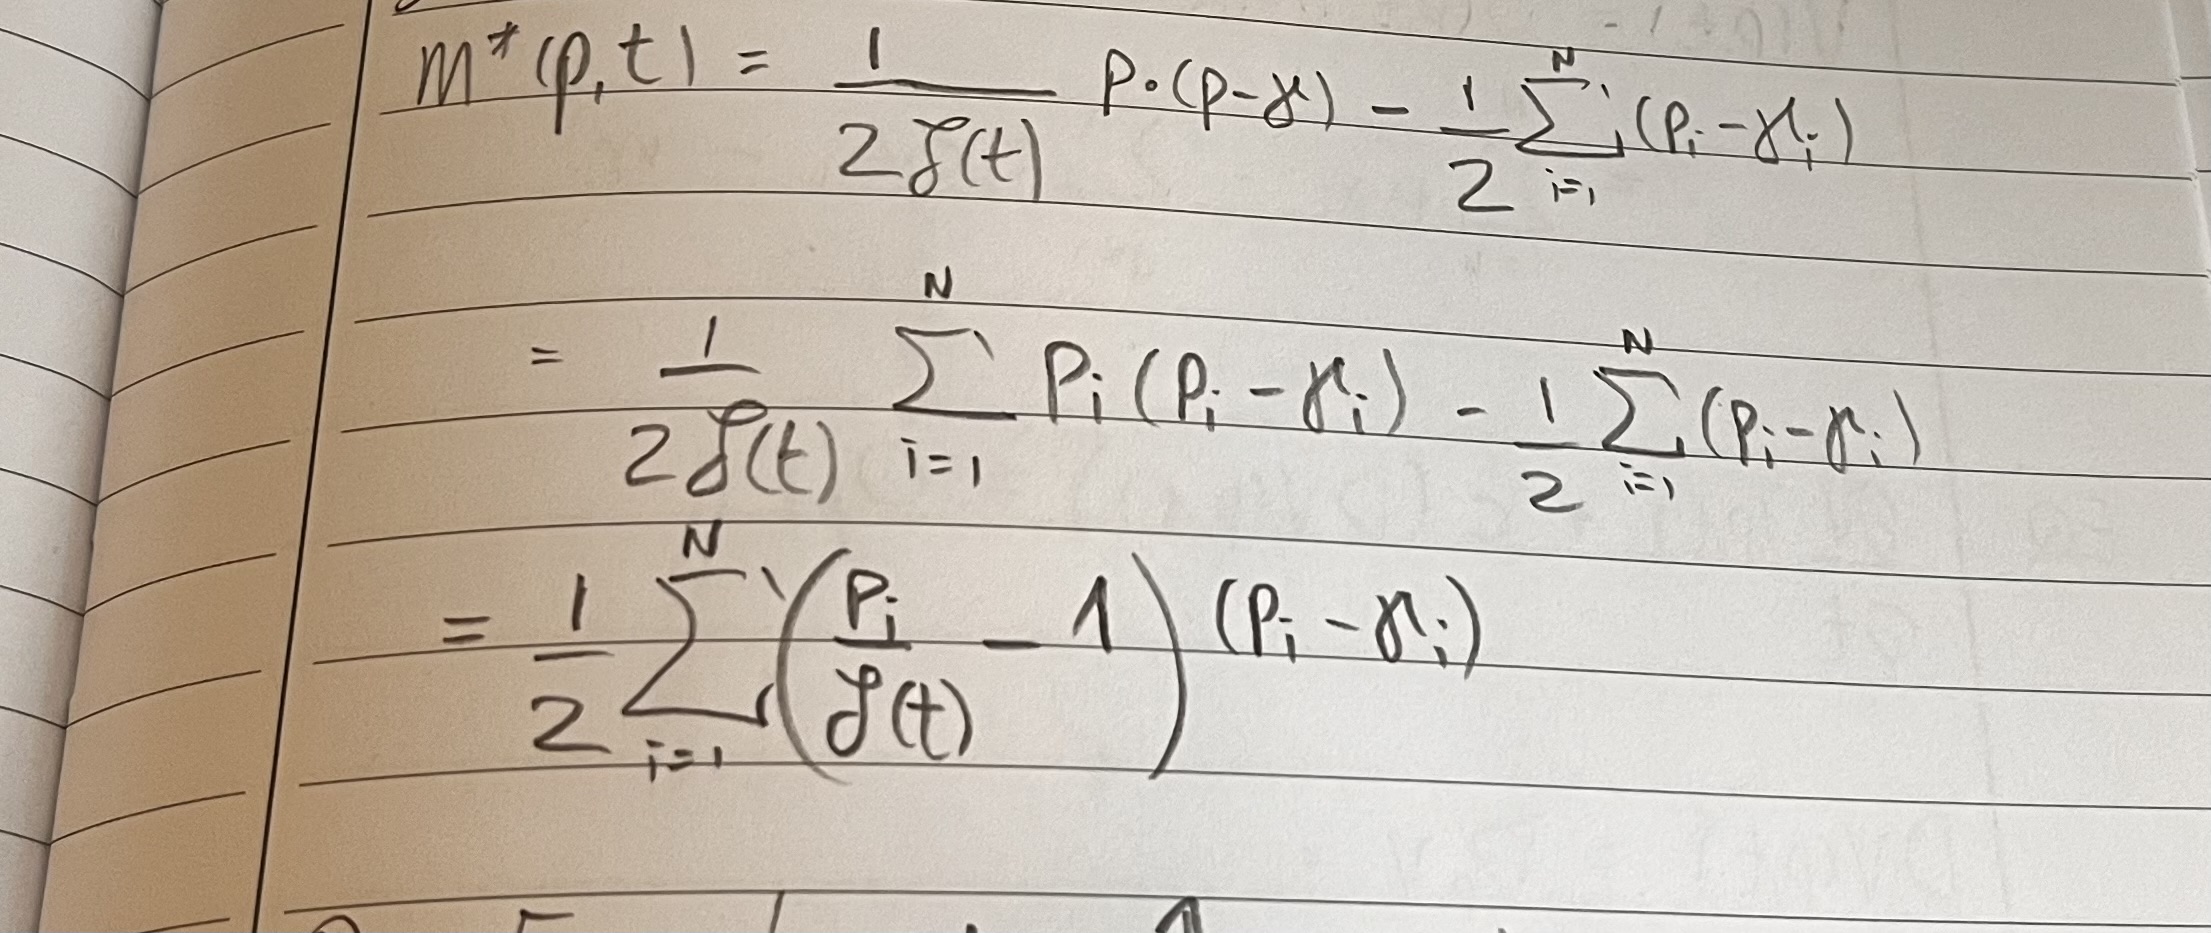 m*(p,t) = 1/(2ζ(t)) p·(p-γ) - 1/2 ∑_{i=1}^{N} (p_i - γ_i)
= 1/(2ζ(t)) ∑_{i=1}^{N} p_i (p_i - γ_i) - 1/2 ∑_{i=1}^{N} (p_i - γ_i)
= 1/2 ∑_{i=1}^{N} (p_i/ζ(t) - 1) (p_i - γ_i)